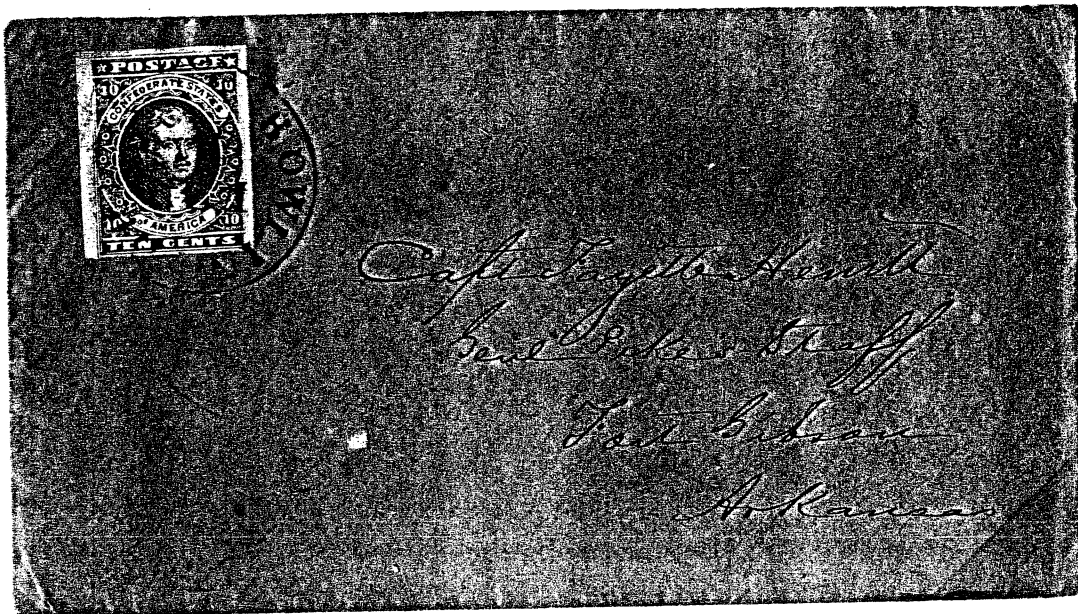 ★ POSTAGE ★
10 10
CONFEDERATE STATES
OF AMERICA
10 10
TEN CENTS
BOWL
Capt Fayette Hewitt
Genl Pike's Staff
Fort Gibson
Arkansas